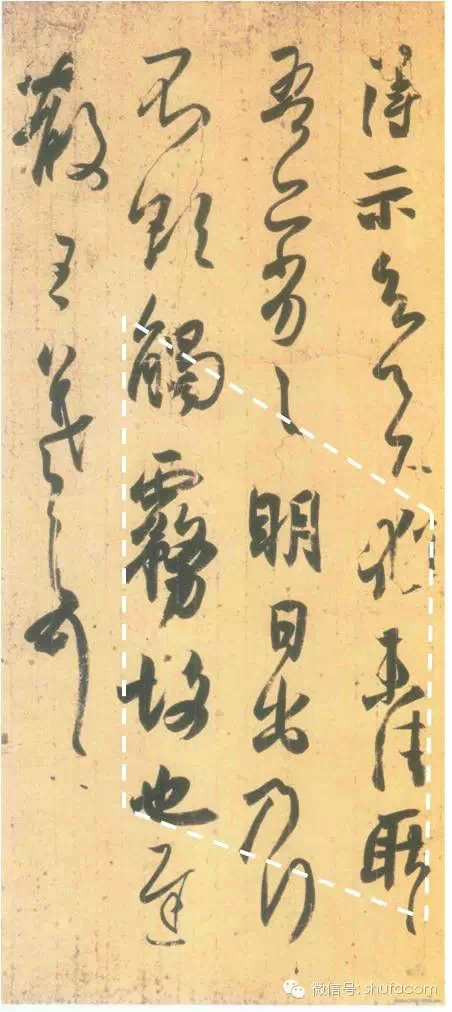 得示知足下猶未佳耿耿
吾亦劣劣明日出乃行
不欲觸霧故也遲
散王羲之頓首
微信号: shufacom